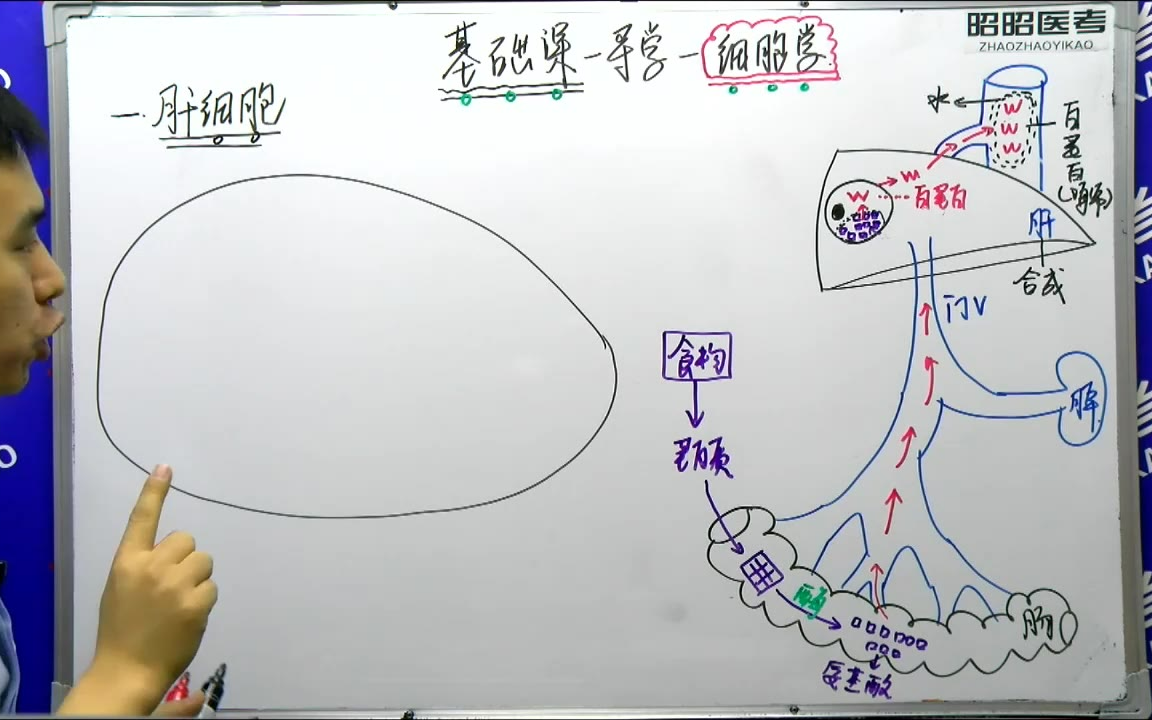 基础课-导学-细胞学
昭昭医考
ZHAOZHAOYIKAO
一.肝细胞
水
W
W
W
白蛋白
W
W
白蛋白
肝
合成
门V
食物
脾
蛋白质
酶
肠
氨基酸